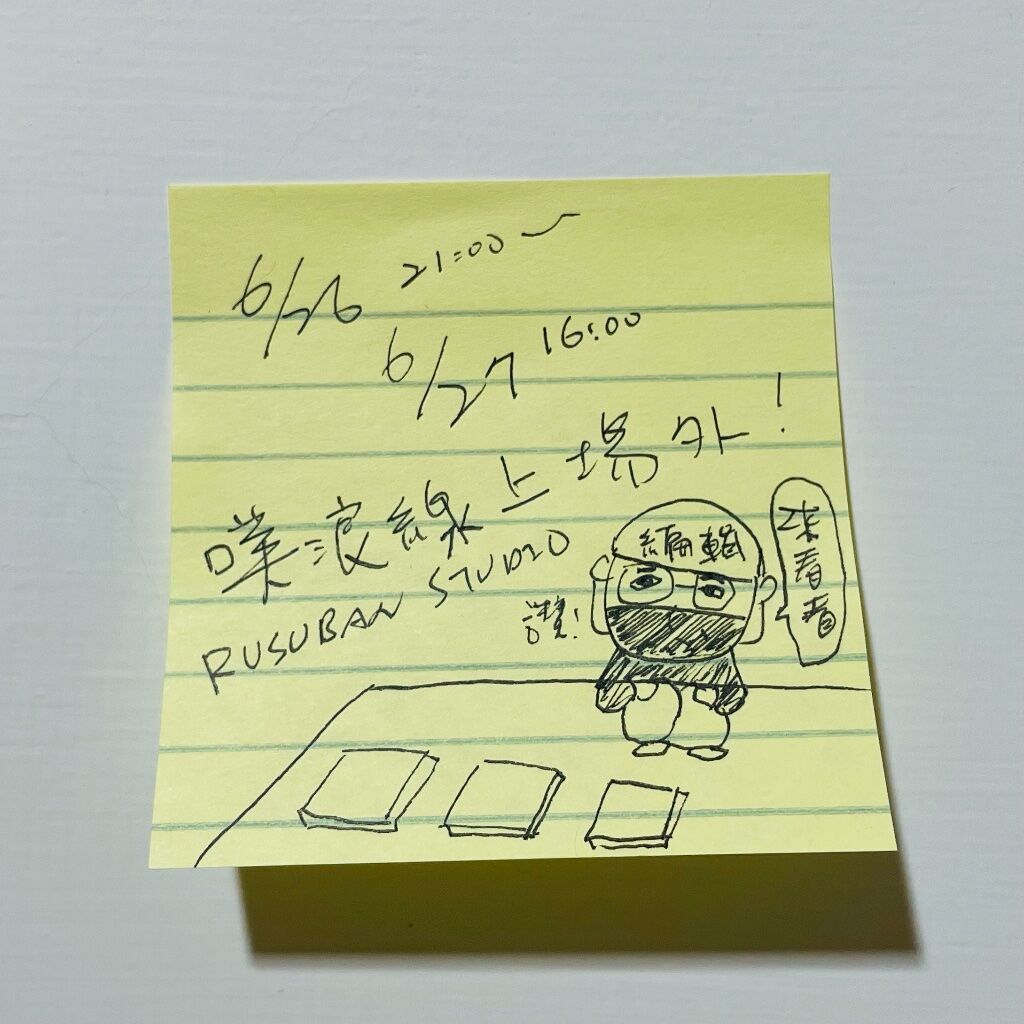 6/26 21:00~
6/27 16:00
噗浪線上場外!
RUSUBAN STUDIO
編輯
來看看
讚!